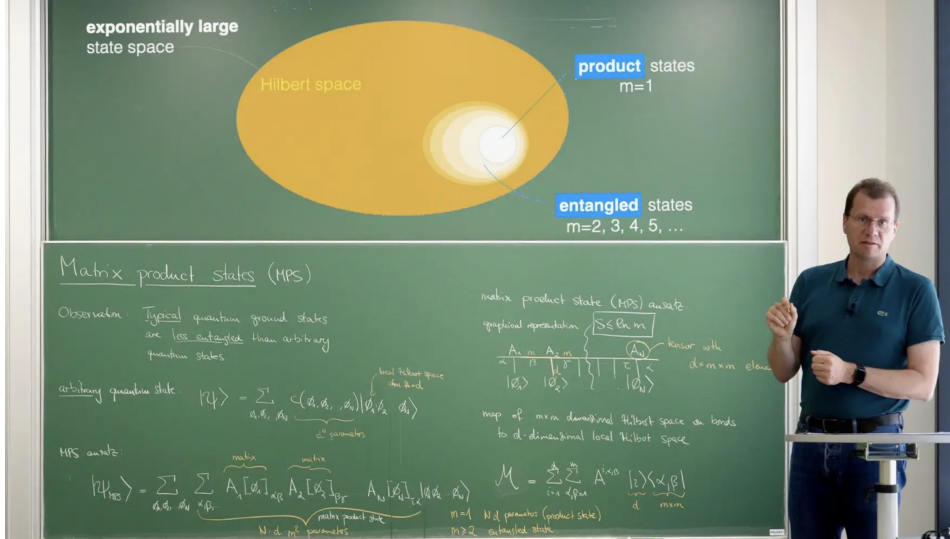 exponentially large
state space
Hilbert space
product states
m=1
entangled states
m=2, 3, 4, 5, ...
Matrix product states (MPS)
Observation: Typical quantum ground states
are less entangled than arbitrary
quantum states
arbitrary quantum state
local Hilbert space
dim d
|ψ⟩ = Σ
parameters
MPS ansatz:
matrix matrix
|ψ_MPS⟩ = Σ Σ A₁[ϕ₁]αβ A₂[ϕ₂]βγ
matrix product state
N·d m² parameters
matrix product state (MPS) ansatz
graphical representation
S ≤ ln m
A₁ m A₂ m A_N
tensor with
d×m×m
α β γ
|ϕ₁⟩ |ϕ₂⟩ |ϕ_N⟩
map of m×m dimensional Hilbert space on bonds
to d-dimensional local Hilbert space
M = Σ Σ A^{i,α,β} |i⟩⟨α,β|
d m×m
m=1 N·d parameters (product state)
m≥2 entangled state